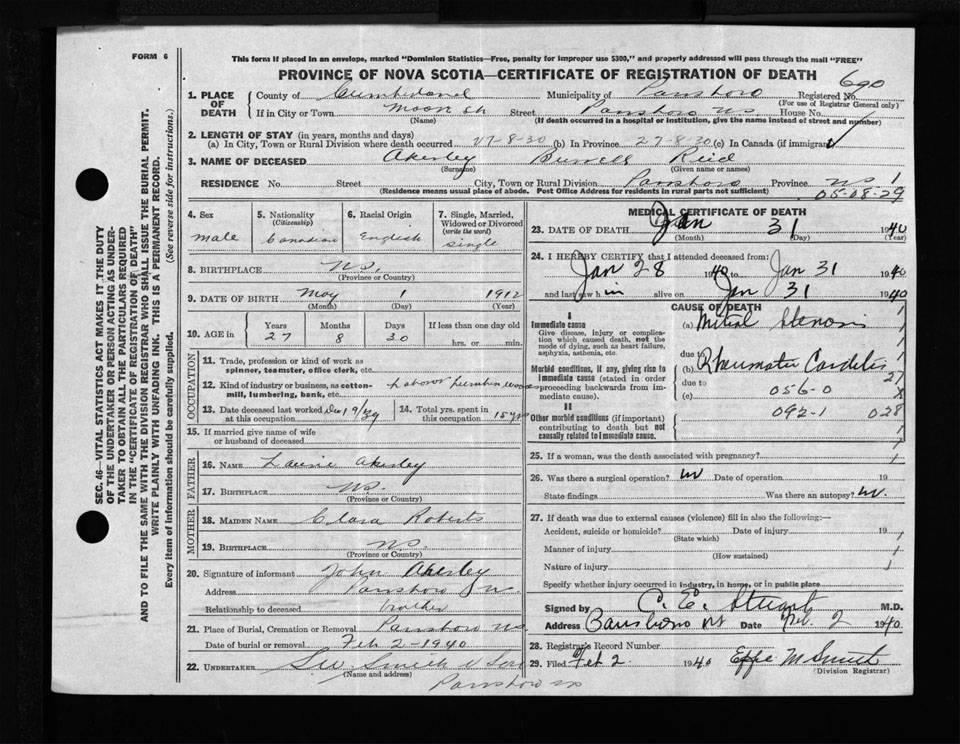 FORM 6
This form if placed in an envelope, marked "Dominion Statistics—Free, penalty for improper use $300," and properly addressed will pass through the mail "FREE"
PROVINCE OF NOVA SCOTIA—CERTIFICATE OF REGISTRATION OF DEATH
690
1. PLACE OF DEATH
County of Cumberland Municipality of Parrsboro Registered No.
(For use of Registrar General only)
If in City or Town Street Parrsboro NS House No.
(Name) (If death occurred in a hospital or institution, give the name instead of street and number)
2. LENGTH OF STAY (in years, months and days)
(a) In City, Town or Rural Division where death occurred 27-8-30 (b) In Province 27-8-30 (c) In Canada (if immigrant)
3. NAME OF DECEASED Akerley Burrell Reid
(Surname) (Given name or names)
RESIDENCE No. Street City, Town or Rural Division Parrsboro Province NS 1
(Residence means usual place of abode. Post Office Address for residents in rural parts not sufficient)
05-08-29
4. Sex male
5. Nationality (Citizenship) Canadian
6. Racial Origin English
7. Single, Married, Widowed or Divorced (write the word) Single
8. BIRTHPLACE NS.
(Province or Country)
9. DATE OF BIRTH May 1 1912
(Month) (Day) (Year)
10. AGE in Years 27 Months 8 Days 30 If less than one day old hrs. or min.
OCCUPATION
11. Trade, profession or kind of work as spinner, teamster, office clerk, etc.
12. Kind of industry or business, as cotton-mill, lumbering, bank, etc. Labor
13. Date deceased last worked at this occupation Dec 1939
14. Total yrs. spent in this occupation 15 yrs
15. If married give name of wife or husband of deceased
FATHER
16. NAME Laurie Akerley
17. BIRTHPLACE NS.
(Province or Country)
MOTHER
18. MAIDEN NAME Clara Roberts
19. BIRTHPLACE NS.
(Province or Country)
20. Signature of informant John Akerley
Address Parrsboro
Relationship to deceased brother
21. Place of Burial, Cremation or Removal Parrsboro NS
Date of burial or removal Feb 2-1940
22. UNDERTAKER Smith & Son
(Name and address)
Parrsboro NS
MEDICAL CERTIFICATE OF DEATH
23. DATE OF DEATH Jan 31 1940
(Month) (Day) (Year)
24. I HEREBY CERTIFY that I attended deceased from:
Jan 28 1940 to Jan 31 1940
and last saw him alive on Jan 31 1940
CAUSE OF DEATH
I
Immediate cause
Give disease, injury or complication which caused death, not the mode of dying, such as heart failure, asphyxia, asthenia, etc.
(a) Mitral Stenosis
due to
Morbid conditions, if any, giving rise to immediate cause (stated in order proceeding backwards from immediate cause).
(b) Rheumatic Carditis
due to
27
(c) 056-0
II
Other morbid conditions (if important) contributing to death but not causally related to immediate cause.
092-1 028
25. If a woman, was the death associated with pregnancy?
26. Was there a surgical operation? Date of operation 19
State findings Was there an autopsy?
27. If death was due to external causes (violence) fill in also the following:—
Accident, suicide or homicide? Date of injury 19
(State which)
Manner of injury
(How sustained)
Nature of injury
Specify whether injury occurred in industry, in home, or in public place
Signed by C. E. Stuart M.D.
Address Parrsboro NS Date Feb. 2 1940.
28. Registrar's Record Number
29. Filed Feb 2 1940 Effie M Smith
(Division Registrar)
SEC. 46—VITAL STATISTICS ACT MAKES IT THE DUTY
OF THE UNDERTAKER OR PERSON ACTING AS UNDER-
TAKER TO OBTAIN ALL THE PARTICULARS REQUIRED
IN THE "CERTIFICATE OF REGISTRATION OF DEATH"
AND TO FILE THE SAME WITH THE DIVISION REGISTRAR WHO SHALL ISSUE THE BURIAL PERMIT.
WRITE PLAINLY WITH UNFADING INK. THIS IS A PERMANENT RECORD.
Every item of information should be carefully supplied.
(See reverse side for instructions.)